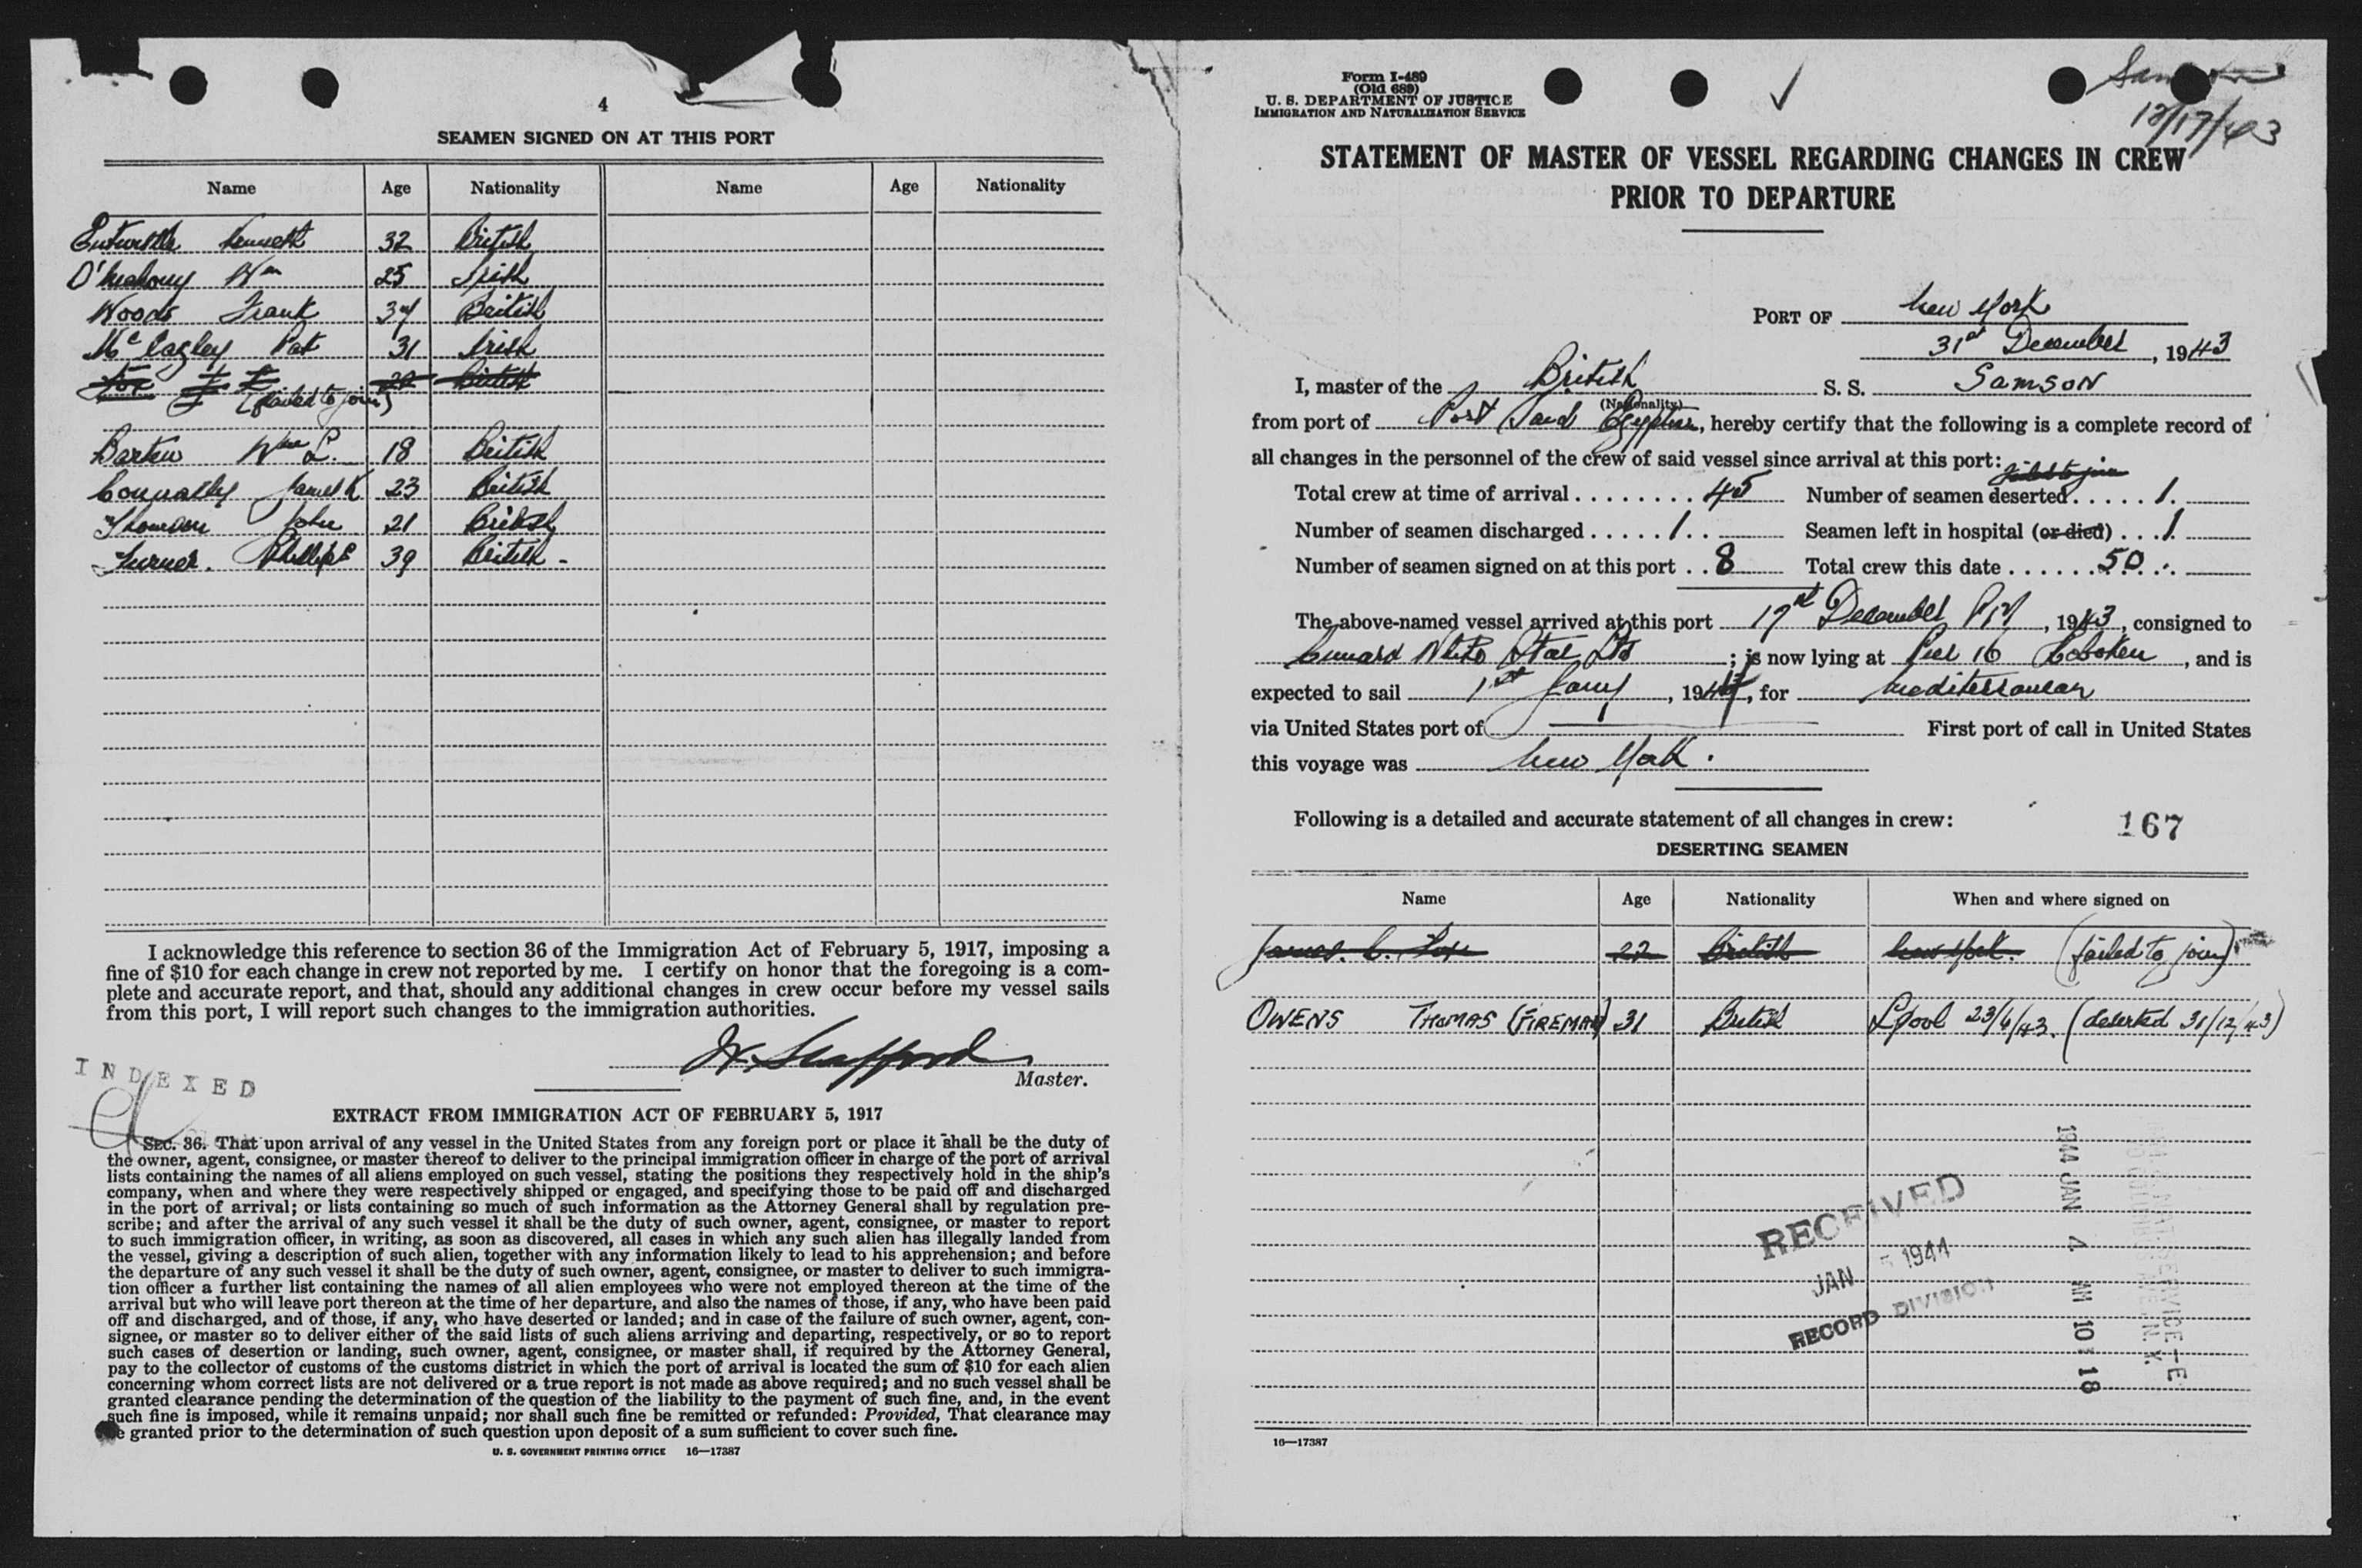 4
SEAMEN SIGNED ON AT THIS PORT
Name Age Nationality Name Age Nationality
Entwistle Kenneth 32 British
O'Mahony Wm 25 Irish
Woods Frank 34 British
Mc Cagley Pat 31 Irish
Fox J 22 British
(failed to join)
Barton Wm L. 18 British
Connolly James K 23 British
Thomson John 21 British
Turner. Phillip 39 British -
I acknowledge this reference to section 36 of the Immigration Act of February 5, 1917, imposing a
fine of $10 for each change in crew not reported by me. I certify on honor that the foregoing is a com-
plete and accurate report, and that, should any additional changes in crew occur before my vessel sails
from this port, I will report such changes to the immigration authorities.
Master.
INDEXED
EXTRACT FROM IMMIGRATION ACT OF FEBRUARY 5, 1917
SEC. 36. That upon arrival of any vessel in the United States from any foreign port or place it shall be the duty of
the owner, agent, consignee, or master thereof to deliver to the principal immigration officer in charge of the port of arrival
lists containing the names of all aliens employed on such vessel, stating the positions they respectively hold in the ship's
company, when and where they were respectively shipped or engaged, and specifying those to be paid off and discharged
in the port of arrival; or lists containing so much of such information as the Attorney General shall by regulation pre-
scribe; and after the arrival of any such vessel it shall be the duty of such owner, agent, consignee, or master to report
to such immigration officer, in writing, as soon as discovered, all cases in which any such alien has illegally landed from
the vessel, giving a description of such alien, together with any information likely to lead to his apprehension; and before
the departure of any such vessel it shall be the duty of such owner, agent, consignee, or master to deliver to such immigra-
tion officer a further list containing the names of all alien employees who were not employed thereon at the time of the
arrival but who will leave port thereon at the time of her departure, and also the names of those, if any, who have been paid
off and discharged, and of those, if any, who have deserted or landed; and in case of the failure of such owner, agent, con-
signee, or master so to deliver either of the said lists of such aliens arriving and departing, respectively, or so to report
such cases of desertion or landing, such owner, agent, consignee, or master shall, if required by the Attorney General,
pay to the collector of customs of the customs district in which the port of arrival is located the sum of $10 for each alien
concerning whom correct lists are not delivered or a true report is not made as above required; and no such vessel shall be
granted clearance pending the determination of the question of the liability to the payment of such fine, and, in the event
such fine is imposed, while it remains unpaid; nor shall such fine be remitted or refunded: Provided, That clearance may
be granted prior to the determination of such question upon deposit of a sum sufficient to cover such fine.
U. S. GOVERNMENT PRINTING OFFICE 16—17387
Form I-489
(Old 689)
U. S. DEPARTMENT OF JUSTICE
IMMIGRATION AND NATURALIZATION SERVICE
12/17/43
STATEMENT OF MASTER OF VESSEL REGARDING CHANGES IN CREW
PRIOR TO DEPARTURE
PORT OF New York
31st December, 1943
I, master of the British S. S. SAMSON
(Nationality)
from port of Port Said Egyptian, hereby certify that the following is a complete record of
all changes in the personnel of the crew of said vessel since arrival at this port:
failed to join
Total crew at time of arrival . . . . . . . . 45 Number of seamen deserted. . . . . 1.
Number of seamen discharged . . . . . 1 . . Seamen left in hospital (or died) . . . 1.
Number of seamen signed on at this port . . 8 Total crew this date . . . . . . 50 . .
The above-named vessel arrived at this port 17 December, 1943, consigned to
Cunard White Star Ltd; is now lying at Pier 16 Hoboken, and is
expected to sail 1st Jany, 1944, for Mediterranean
via United States port of First port of call in United States
this voyage was New York.
Following is a detailed and accurate statement of all changes in crew: 167
DESERTING SEAMEN
Name Age Nationality When and where signed on
James. C. Fox 22 British New York. (failed to join)
OWENS THOMAS (FIREMAN) 31 British L'pool 23/6/43. (deserted 31/12/43)
RECEIVED
JAN 5 1944
RECORD DIVISION
1944 JAN 4 AM 10 18
16—17387